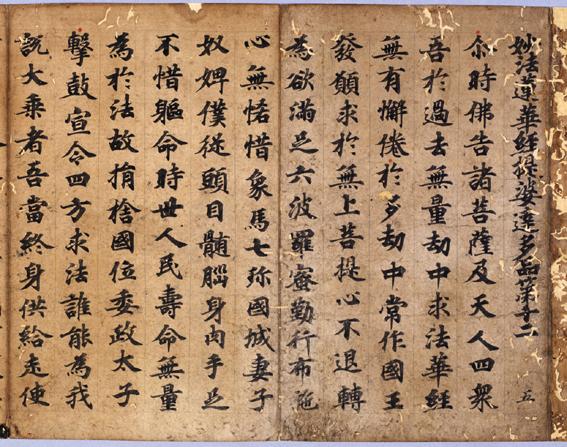 妙法蓮華經提婆達多品第十二
五
尒時佛告諸菩薩及天人四衆
吾於過去無量劫中求法華經
無有懈倦於多劫中常作國王
發願求於無上菩提心不退轉
為欲滿足六波羅蜜勤行布施
心無悋惜象馬七珎國城妻子
奴婢僕從頭目髓腦身肉手足
不惜軀命時世人民壽命無量
為於法故捐捨國位委政太子
擊鼓宣令四方求法誰能為我
說大乘者吾當終身供給走使